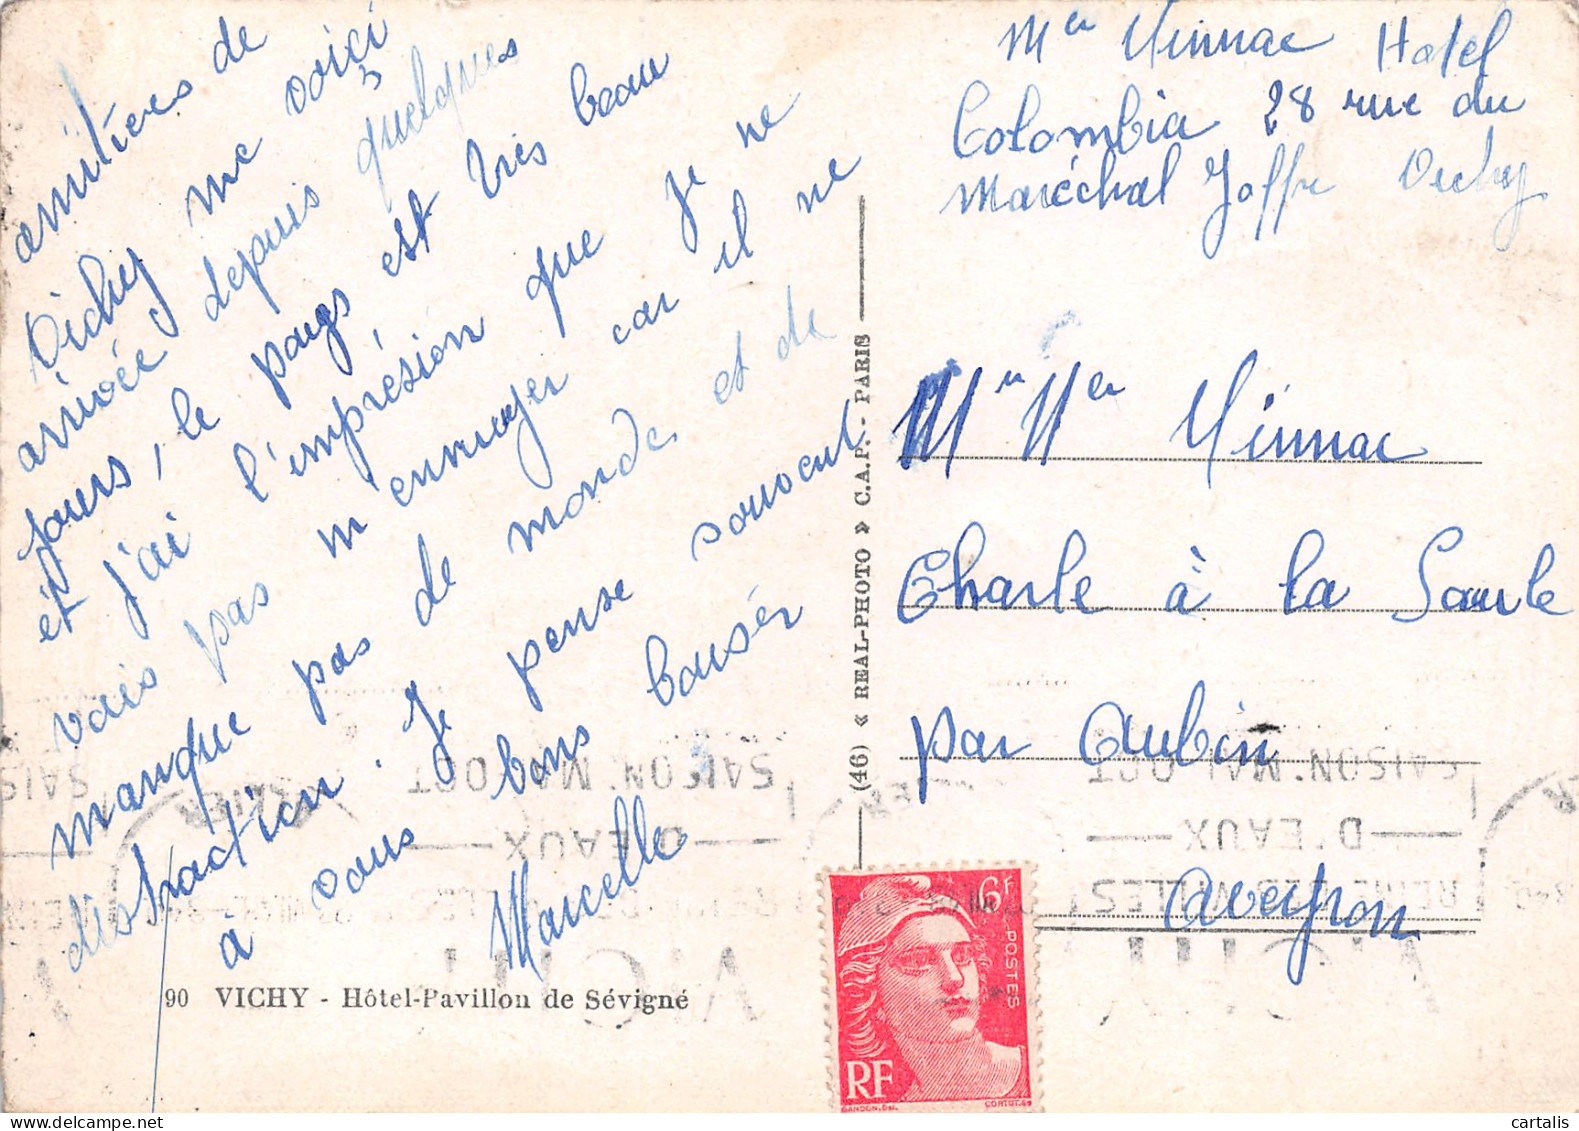 amitiers de
Vichy me voici
arrivée depuis quelques
jours, le pays est très beau
et j'ai l'imprésion que je ne
vais pas m'ennuyer car il ne
manque pas de monde et de
distraction. Je pense souvent
à vous bons baisér
Marcelle
90 VICHY - Hôtel-Pavillon de Sévigné
(46) « REAL-PHOTO » C.A.P. - PARIS
Hotel
Colombia 28 rue du
Maréchal Joffre Vichy
Charle à la Saule
par Aubin
Aveyron
6F
POSTES
RF
GANDON.DEL.
SAISON. MAI OCT
D'EAUX
REINE DES VILLES
VICHY
cartalis